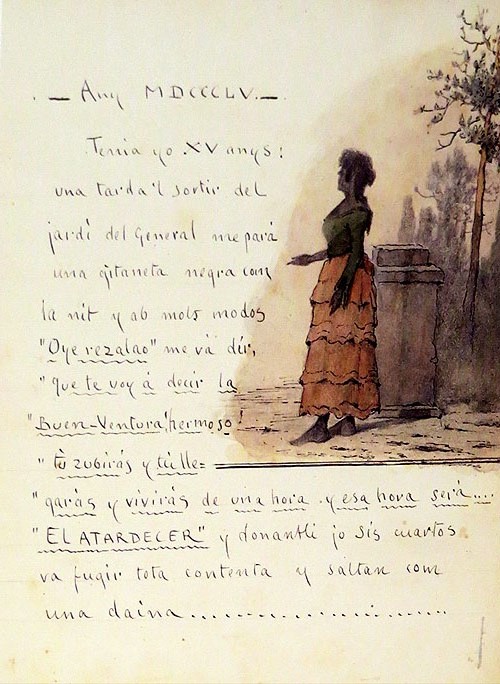 . — Any MDCCCLV. —
Tenia yo XV anys:
una tarda 'l sortir del
jardí del General me pará
una gitaneta negra com
la nit y ab mols modos
"Oye rezalao" me vá dir,
"que te voy á decir la
"Buen-Ventura, hermoso!
"tú zubirás y tú lle=
"garás y vivirás de una hora y esa hora será....
"EL ATARDECER" y donantli jo sis cuartos
va fugir tota contenta y saltan com
una daina....................